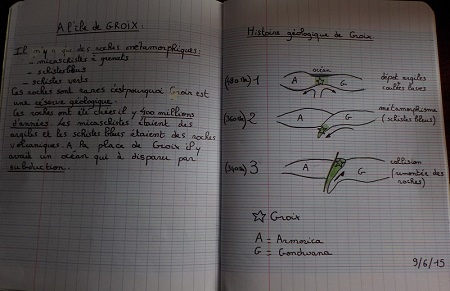 A l'île de GROIX.
Il n'y a que des roches métamorphiques:
- micaschistes à grenats
- schistes bleus
- schistes verts
Ces roches sont rares c'est pourquoi Groix est
une réserve géologique.
Les roches ont été crées il y 400 millions
d'années les micaschistes étaient des
argiles et les schistes bleus étaient des roches
volcaniques. A la place de Groix il y
avait un océan qui à disparu par
subduction.
Histoire géologique de Groix.
océan
1
A
G
dépôt argiles
coulées laves
2
A
G
métamorphisme
(schistes bleus)
3
A
G
collision
(remontée des
roches)
☆ Groix
A = Armorica
G = Gondwana
9/6/15